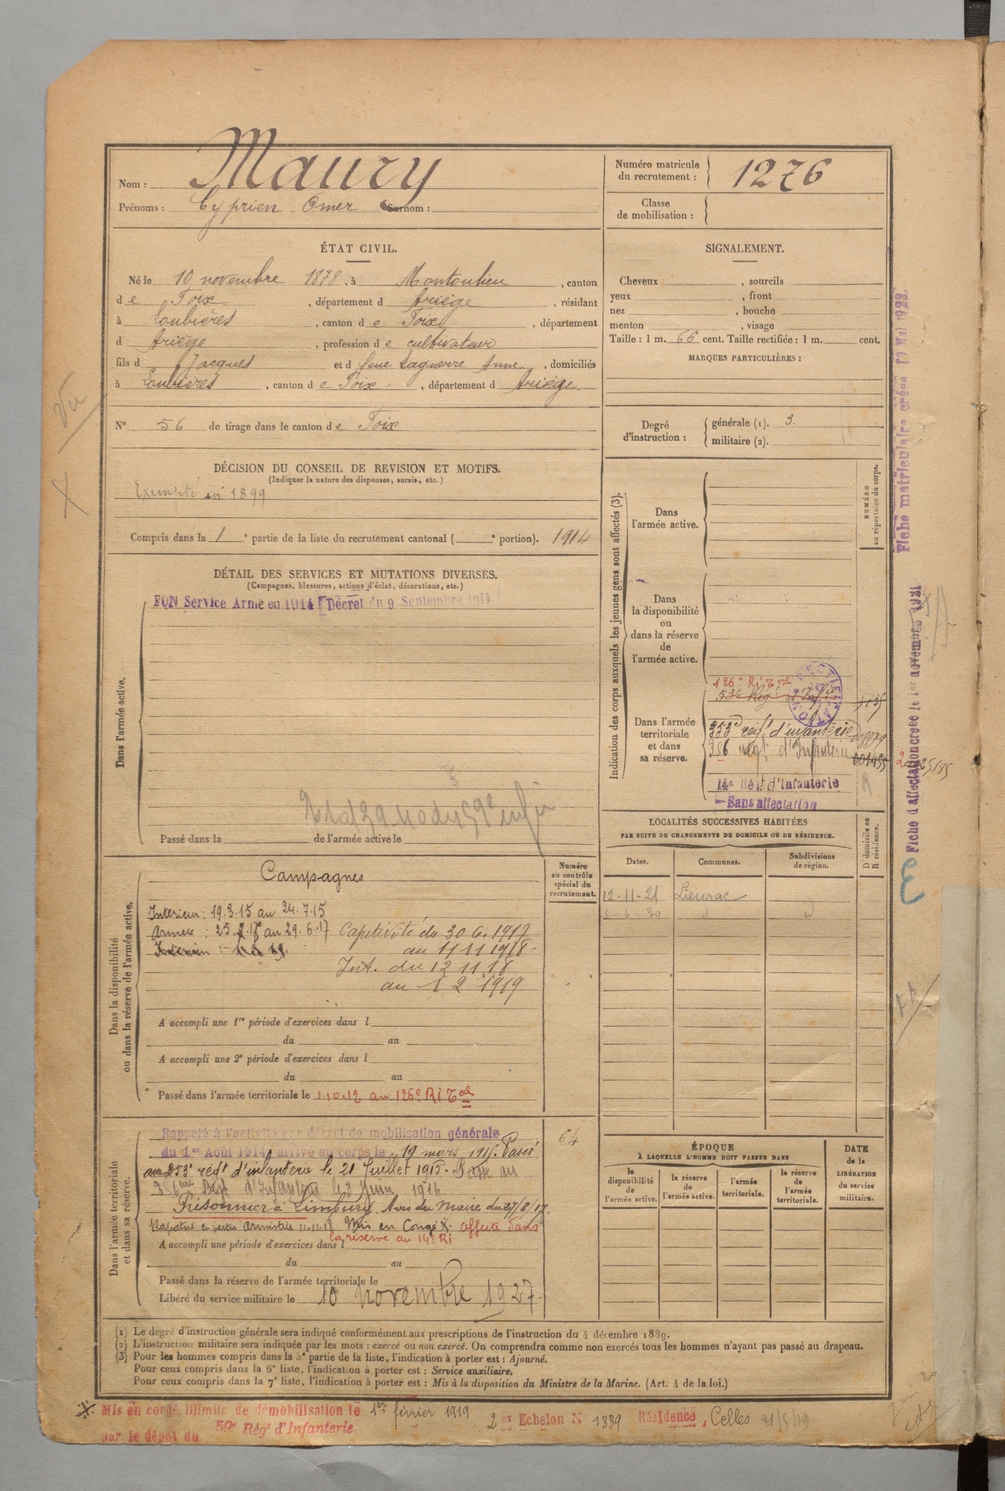 Nom : Maury
Prénoms : Cyprien Omer Surnom :
Numéro matricule du recrutement : 1276
Classe de mobilisation :
ÉTAT CIVIL.
Né le 10 novembre 1878, à Montoulieu, canton
de Foix, département d Ariège, résidant
à Loubières, canton de Foix, département
d Ariège, profession de cultivateur
fils d Jacques et d feue Laguerre Anne, domiciliés
à Loubières, canton de Foix, département d Ariège
N° 56 de tirage dans le canton de Foix
SIGNALEMENT.
Cheveux , sourcils
yeux , front
nez , bouche
menton , visage
Taille : 1 m. 65 cent. Taille rectifiée : 1 m. cent.
MARQUES PARTICULIÈRES :
Degré d'instruction : générale (1). 3.
militaire (2).
DÉCISION DU CONSEIL DE REVISION ET MOTIFS.
(Indiquer la nature des dispenses, sursis, etc.)
Exempté en 1899
Compris dans la 1e partie de la liste du recrutement cantonal ( e portion). 1914
DÉTAIL DES SERVICES ET MUTATIONS DIVERSES.
(Campagnes, blessures, actions d'éclat, décorations, etc.)
BON Service Armé en 1914 Décret du 9 Septembre 1914
Dans l'armée active.
Passé dans la de l'armée active le
Indication des corps auxquels les jeunes gens sont affectés (3).
NUMÉRO au répertoire du corps.
Dans l'armée active.
Dans la disponibilité ou dans la réserve de l'armée active.
Dans l'armée territoriale et dans sa réserve.
126e Ri Tal
53e Rég d'Inf
353e régt d'infanterie
356 régt d'Infanterie
14e Régt d'Infanterie
Sans affectation
LOCALITÉS SUCCESSIVES HABITÉES
PAR SUITE DE CHANGEMENTS DE DOMICILE OU DE RÉSIDENCE.
Dates. Communes. Subdivisions de région. D domicile ou R résidence.
12-11-21 Lieurac
Dans la disponibilité ou dans la réserve de l'armée active.
Numéro au contrôle spécial du recrutement.
Campagnes
Intérieur : 19.3.15 au 24.7.15
Armée : 25.7.15 au 29.6.17 Captivité du 30.6.1917
au 11 11 1918
Int. du 12 11 18
au 1 2 1919
A accompli une 1re période d'exercices dans l
du au
A accompli une 2e période d'exercices dans l
du au
Passé dans l'armée territoriale le 1.10.12 au 126e Ri Tal
Dans l'armée territoriale et dans sa réserve.
64
Rappelé à l'activité par décret de mobilisation générale
du 1er Août 1914, arrivé au corps le 19 mars 1915. Passé
au 353e régt d'infanterie le 21 Juillet 1915. Passé au
356me Régt d'Infanterie le 2 Juin 1916
Prisonnier à Limburg. Avis du Maire du 27/8/17.
Rapatrié en vertu armistice 11-11-18 Mis en Congé X. affecté dans
la réserve au 14e Ri
A accompli une période d'exercices dans l
du au
Passé dans la réserve de l'armée territoriale le
Libéré du service militaire le 10 novembre 1927.
ÉPOQUE
À LAQUELLE L'HOMME DOIT PASSER DANS
la disponibilité de l'armée active. la réserve de l'armée active. l'armée territoriale. la réserve de l'armée territoriale.
DATE de la LIBÉRATION du service militaire.
(1) Le degré d'instruction générale sera indiqué conformément aux prescriptions de l'instruction du 4 décembre 1889.
(2) L'instruction militaire sera indiquée par les mots : exercé ou non exercé. On comprendra comme non exercés tous les hommes n'ayant pas passé au drapeau.
(3) Pour les hommes compris dans la 5e partie de la liste, l'indication à porter est : Ajourné.
Pour ceux compris dans la 6e liste, l'indication à porter est : Service auxiliaire.
Pour ceux compris dans la 7e liste, l'indication à porter est : Mis à la disposition du Ministre de la Marine. (Art. 4 de la loi.)
X. Mis en congé illimité de démobilisation le 1er février 1919 2e Echelon N° 1889 Résidence, Celles
par le dépôt du 59e Rég d'Infanterie
Fiche matriculaire créée
Fiche d'affectation créée le 1er novembre 1921
Vu